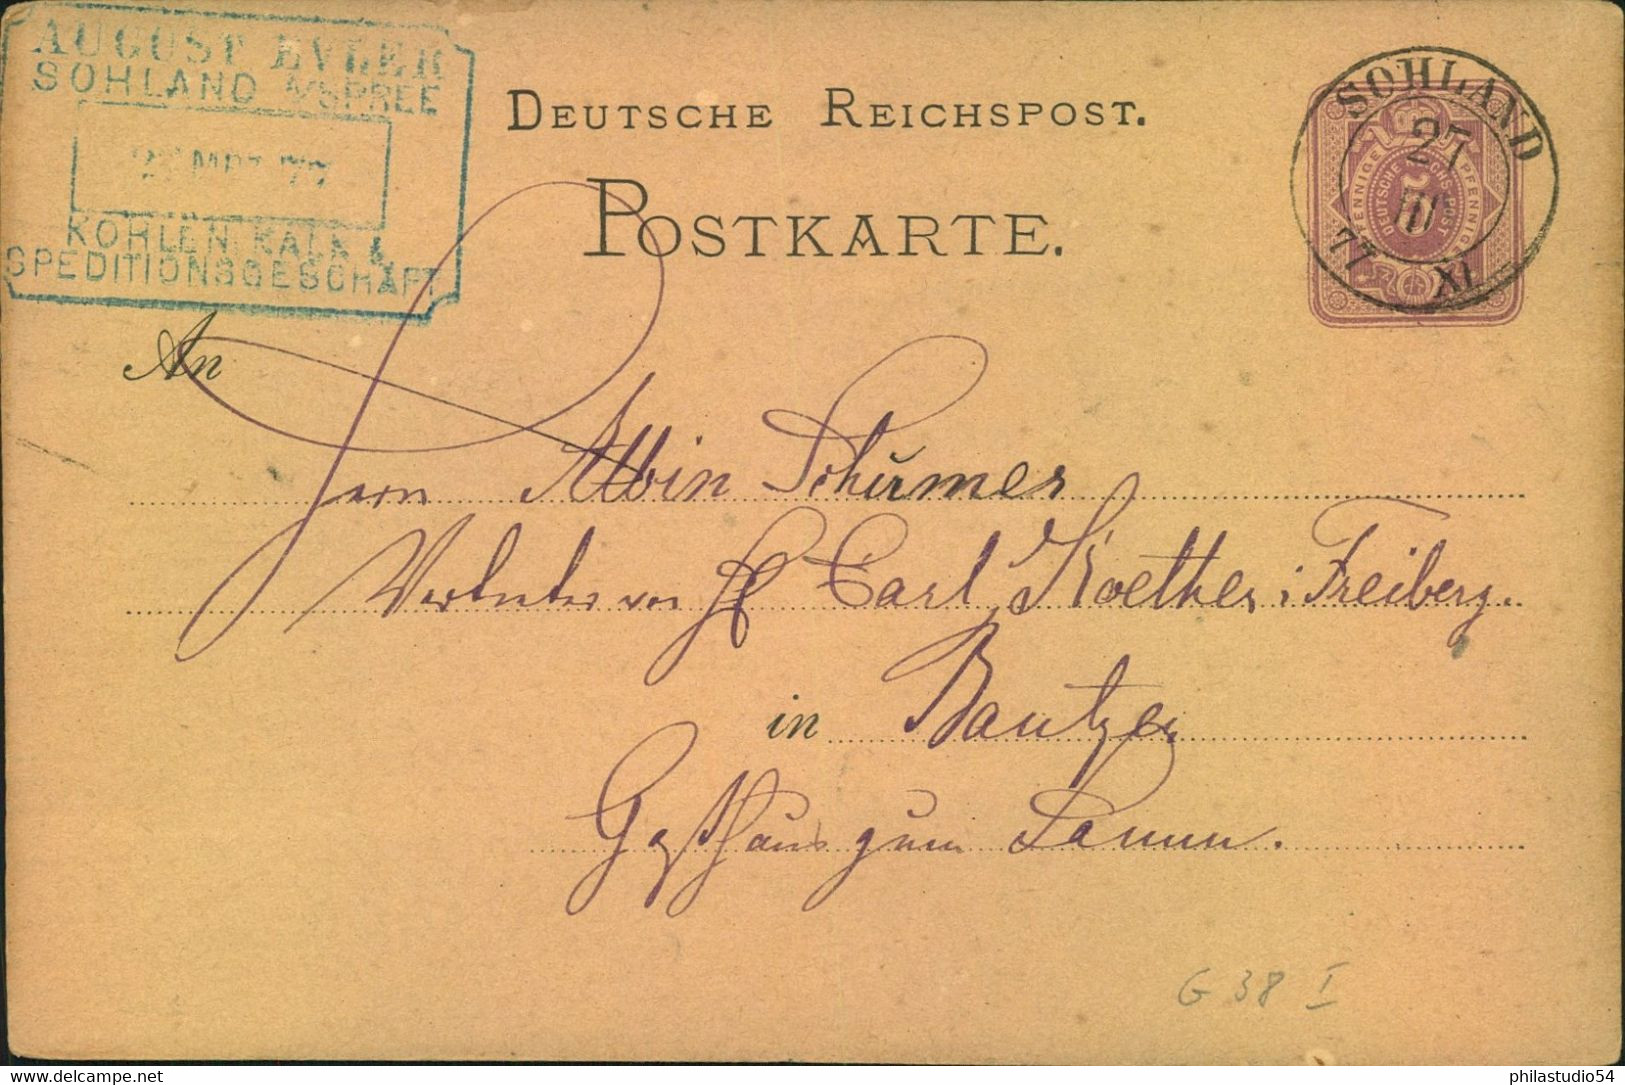 AUGUST EYLER
SOHLAND A/SPREE
MRZ 77
KOHLEN, KALK &
SPEDITIONSGESCHÄFT
DEUTSCHE REICHSPOST.
POSTKARTE.
SOHLAND
27
III
77 XI
PFENNIGE 5 PFENNIGE
DEUTSCHE REICHS-POST
An
Herrn Albin Schirmer
Vertreter von H Carl Koethe i Freiberg.
in Bautzen
Gasthaus zum Lamm.
G 38 I
www.delcampe.net
philastudio54